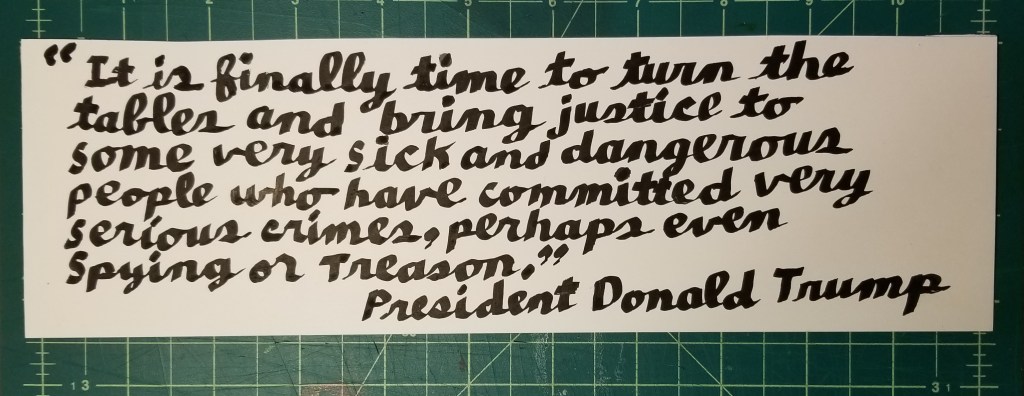 “It is finally time to turn the
tables and bring justice to
some very sick and dangerous
people who have committed very
serious crimes, perhaps even
spying or Treason.”
President Donald Trump
13
31